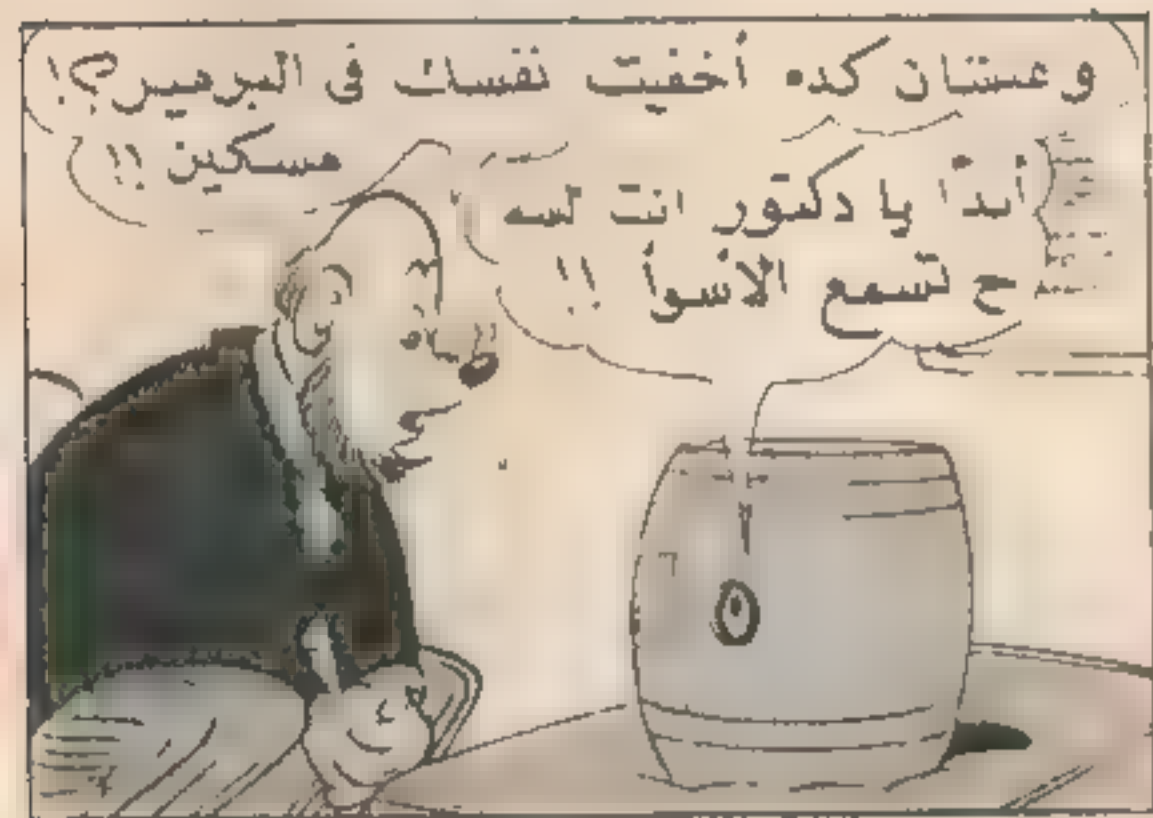 وعشان كده أخفيت نفسك فى البرميل؟!
مسكين !!
أبداً يا دكتور انت لسه
ح تسمع الأسوأ !!